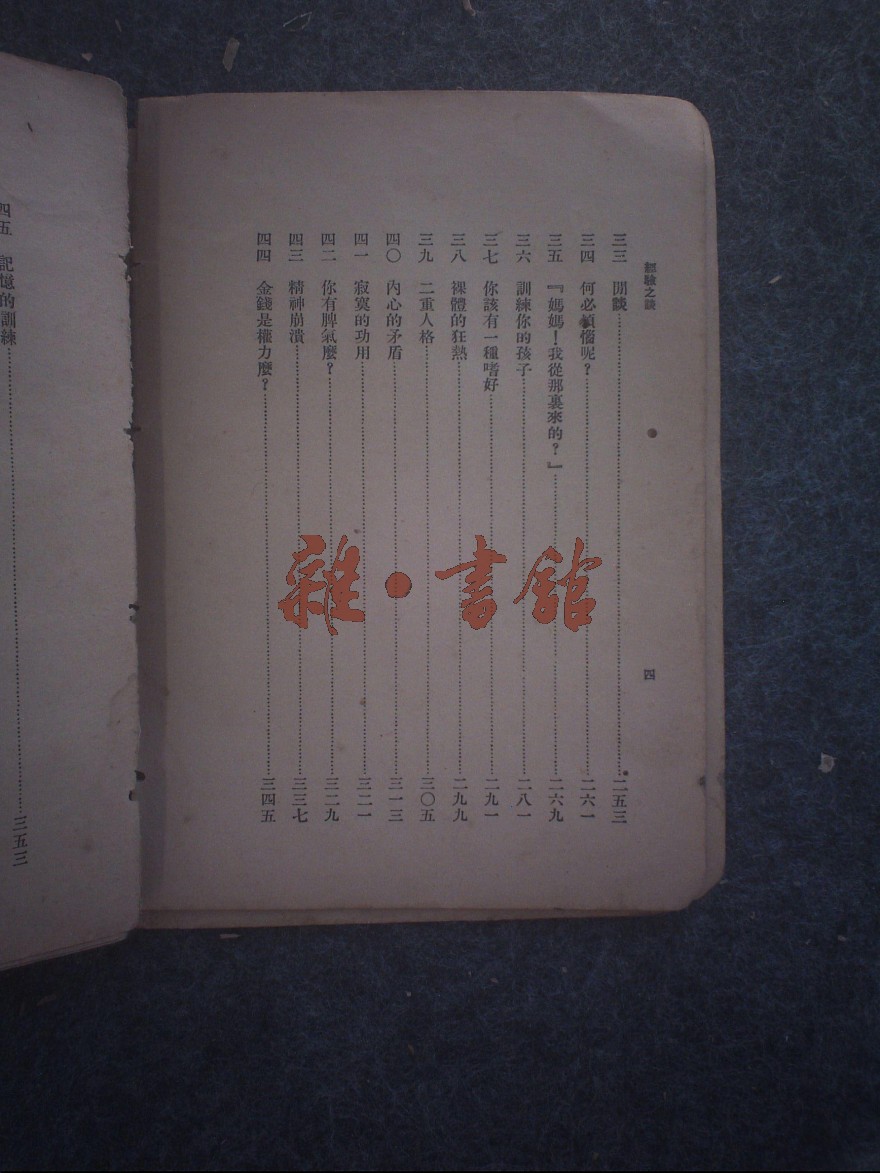 經驗之談
四
三三 閒談……二五三
三四 何必煩惱呢？……二六一
三五 『媽媽！我從那裏來的？』……二六九
三六 訓練你的孩子……二八一
三七 你該有一種嗜好……二九一
三八 裸體的狂熱……二九九
三九 二重人格……三〇五
四〇 內心的矛盾……三一三
四一 寂寞的功用……三二一
四二 你有脾氣麼？……三二九
四三 精神崩潰……三三七
四四 金錢是權力麼？……三四五
四五 記憶的訓練……三五三
雜·書館